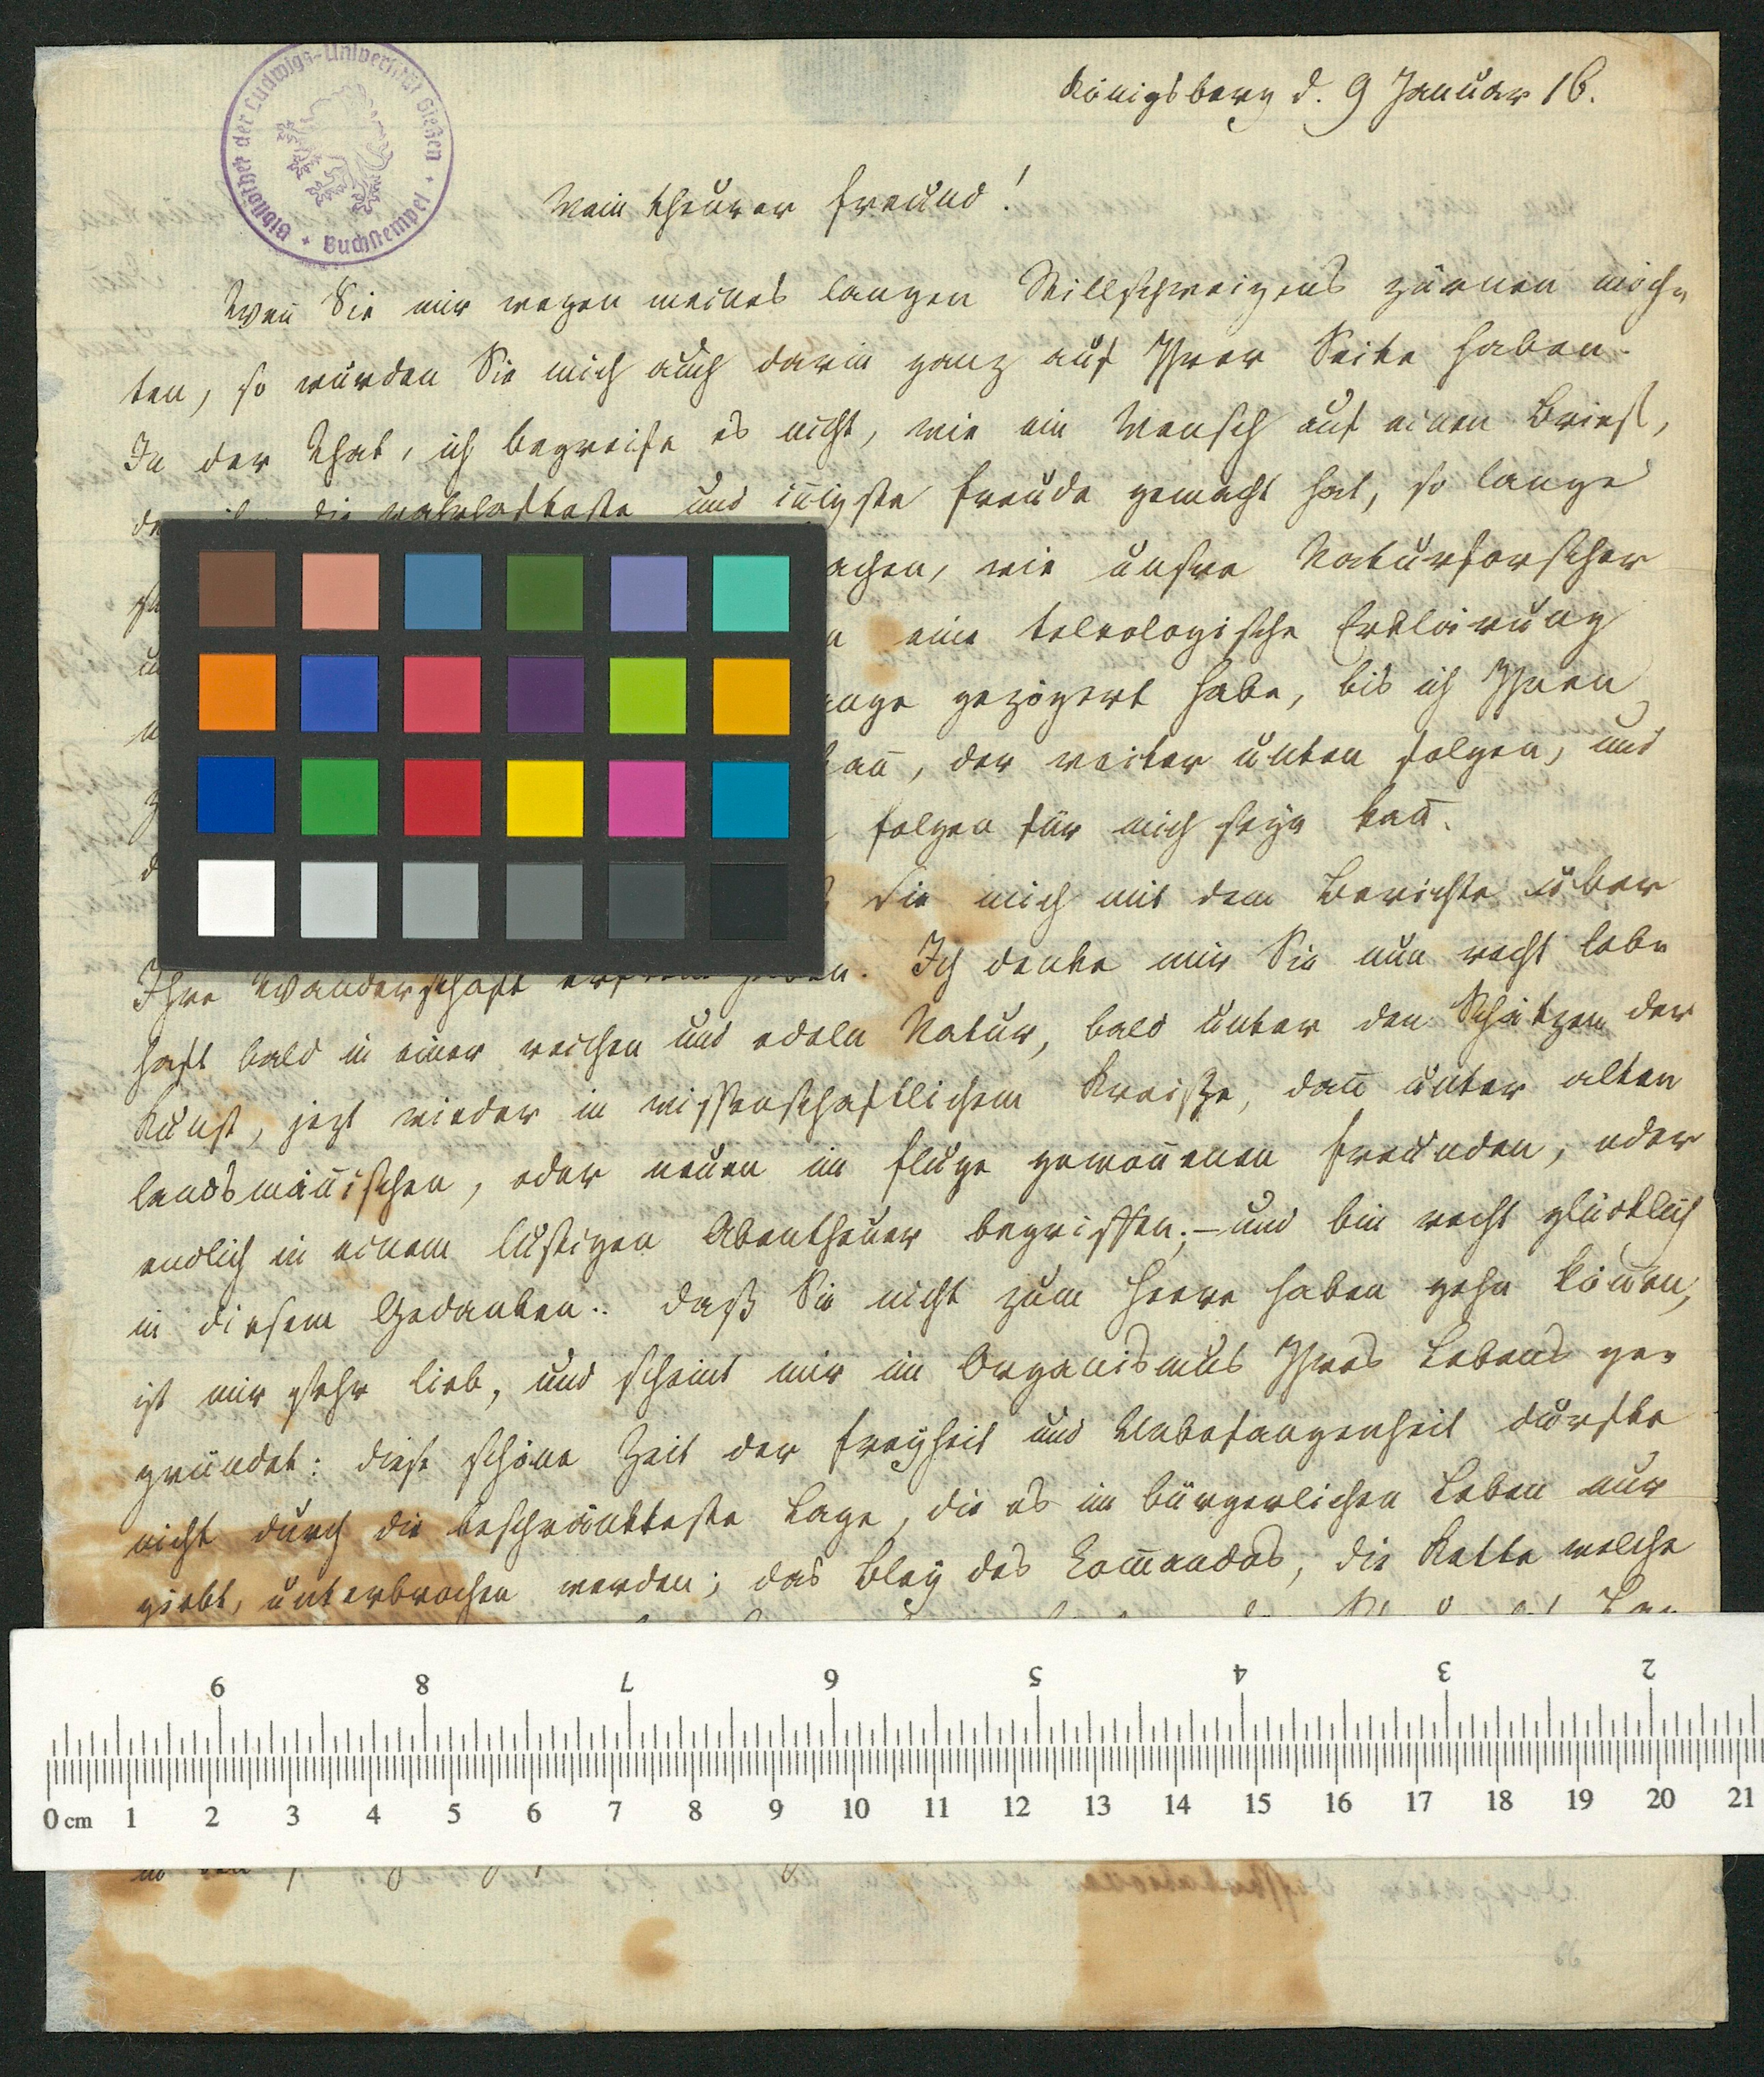 Bibliothek der Ludwigs-Universität Gießen · Buchstempel ·
Königsberg d. 9 Januar 16.
Mein theurer Freund!
Weñ Sie mir wegen meines langen Stillschweigens zürnen möch-
ten, so würden Sie mich auch darin ganz auf Ihrer Seite haben.
In der That, ich begreife es nicht, wie ein Mensch auf einen Brief,
die wahrhafteste und iñigste Freude gemacht hat, so lange
achen, wie unsre Naturforscher
eine teleologische Erklärung
ange gezögert habe, bis ich Ihnen
kañ, der weiter unten folgen, und
Folgen für mich seyn kañ.
Sie mich mit dem Berichte über
Ihre Wanderschaft erfreut haben. Ich denke mir Sie nun recht leb-
haft bald in einer reichen und edeln Natur, bald unter den Schätzen der
Kunst, jezt wieder in wissenschaftlichem Kreiße, dañ unter alten
landsmäñischen, oder neuen im Fluge gewoñenen Freunden, oder
endlich in einem lustigen Abentheuer begriffen; – und bin recht glücklich
in diesem Gedanken. daß Sie nicht zum Heere haben gehn köñen,
ist mir sehr lieb, und scheint mir im Organismus Ihres Lebens ge-
gründet: diese schöne Zeit der Freyheit und Unbefangenheit durfte
nicht durch die beschränkteste Lage, die es im bürgerlichen Leben nur
giebt, unterbrochen werden; das Bley des Com̃andos, die Kette welche
9 8 7 6 5 4 3 2
0 cm 1 2 3 4 5 6 7 8 9 10 11 12 13 14 15 16 17 18 19 20 21